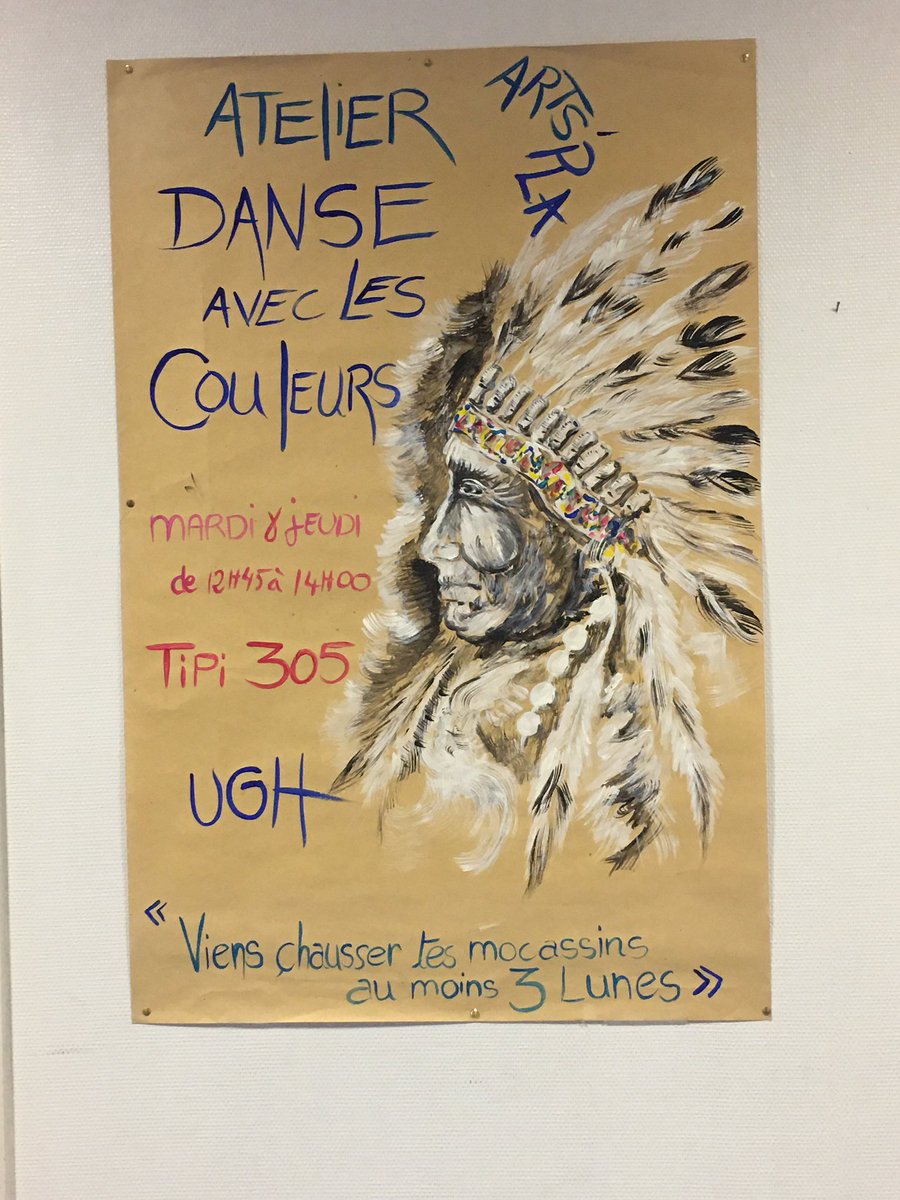 ATELIER
DANSE
AVEC LES
COULEURS
ARTS'RLX
MARDI & JEUDI
de 12H45 à 14H00
TIPI 305
UGH
« Viens chausser tes mocassins
au moins 3 Lunes »